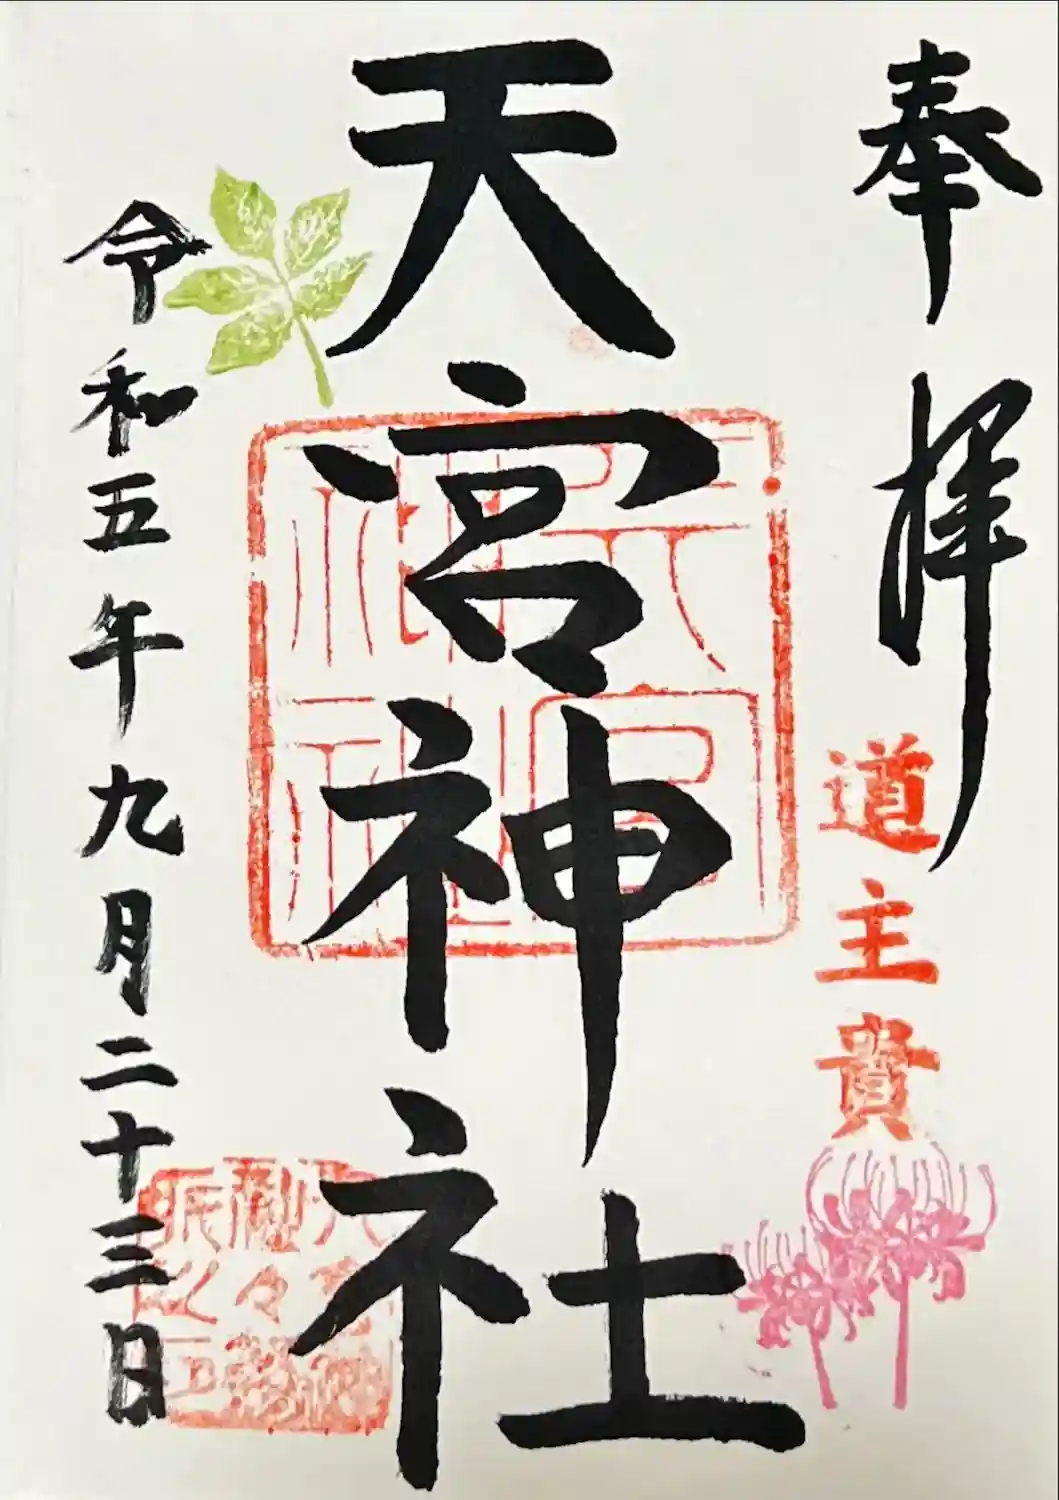 奉拝
道主貴
天宮神社
天宮神社
令和五年九月二十三日